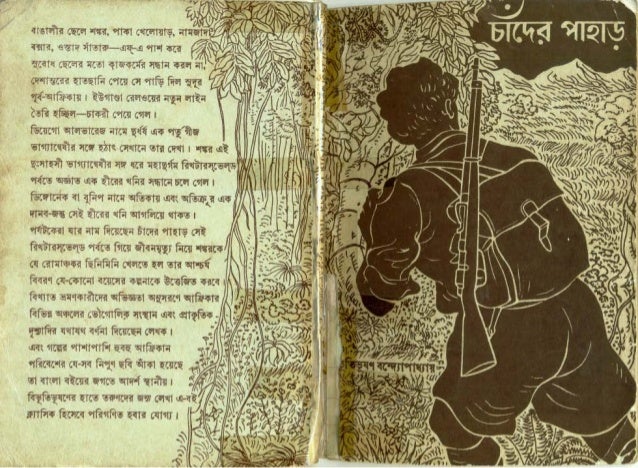 বাঙালীর ছেলে শঙ্কর, পাকা খেলোয়াড়, নামজাদা
বক্সার, ওস্তাদ সাঁতারু—এফ্-এ পাশ করে
সুবোধ ছেলের মতো কাজকর্মের সন্ধান করল না,
দেশান্তরের হাতছানি পেয়ে সে পাড়ি দিল সুদূর
পূর্ব-আফ্রিকায়। ইউগাণ্ডা রেলওয়ের নতুন লাইন
তৈরি হচ্ছিল—চাকরী পেয়ে গেল।
ডিয়েগো আলভারেজ নামে দুর্ধর্ষ এক পর্তুগীজ
ভাগ্যান্বেষীর সঙ্গে হঠাৎ সেখানে তার দেখা। শঙ্কর এই
দুঃসাহসী ভাগ্যান্বেষীর সঙ্গ ধরে মহাদুর্গম রিখটারস্‌ভেল্‌ড
পর্বতে অজ্ঞাত এক হীরের খনির সন্ধানে চলে গেল।
ডিঙ্গোনেক বা বুনিপ নামে অতিকায় এবং অতিক্রূর এক
দানব-জন্তু সেই হীরের খনি আগলিয়ে থাকত।
পর্যটকেরা যার নাম দিয়েছেন চাঁদের পাহাড় সেই
রিখটারস্‌ভেল্‌ড পর্বতে গিয়ে জীবনমৃত্যু নিয়ে শঙ্করকে
যে রোমাঞ্চকর ছিনিমিনি খেলতে হল তার আশ্চর্য
বিবরণ যে-কোনো বয়েসের কল্পনাকে উত্তেজিত করবে।
বিখ্যাত ভ্রমণকারীদের অভিজ্ঞতা অনুসরণে আফ্রিকার
বিভিন্ন অঞ্চলের ভৌগোলিক সংস্থান এবং প্রাকৃতিক
দৃশ্যাদির যথাযথ বর্ণনা দিয়েছেন লেখক।
এবং গল্পের পাশাপাশি হুবহু আফ্রিকান
পরিবেশের যে-সব নিপুণ ছবি আঁকা হয়েছে
তা বাংলা বইয়ের জগতে আদর্শ স্থানীয়।
বিভূতিভূষণের হাতে তরুণদের জন্য লেখা এ-বই
ক্লাসিক হিসেবে পরিগণিত হবার যোগ্য।
চাঁদের পাহাড়
বন্দ্যোপাধ্যায়